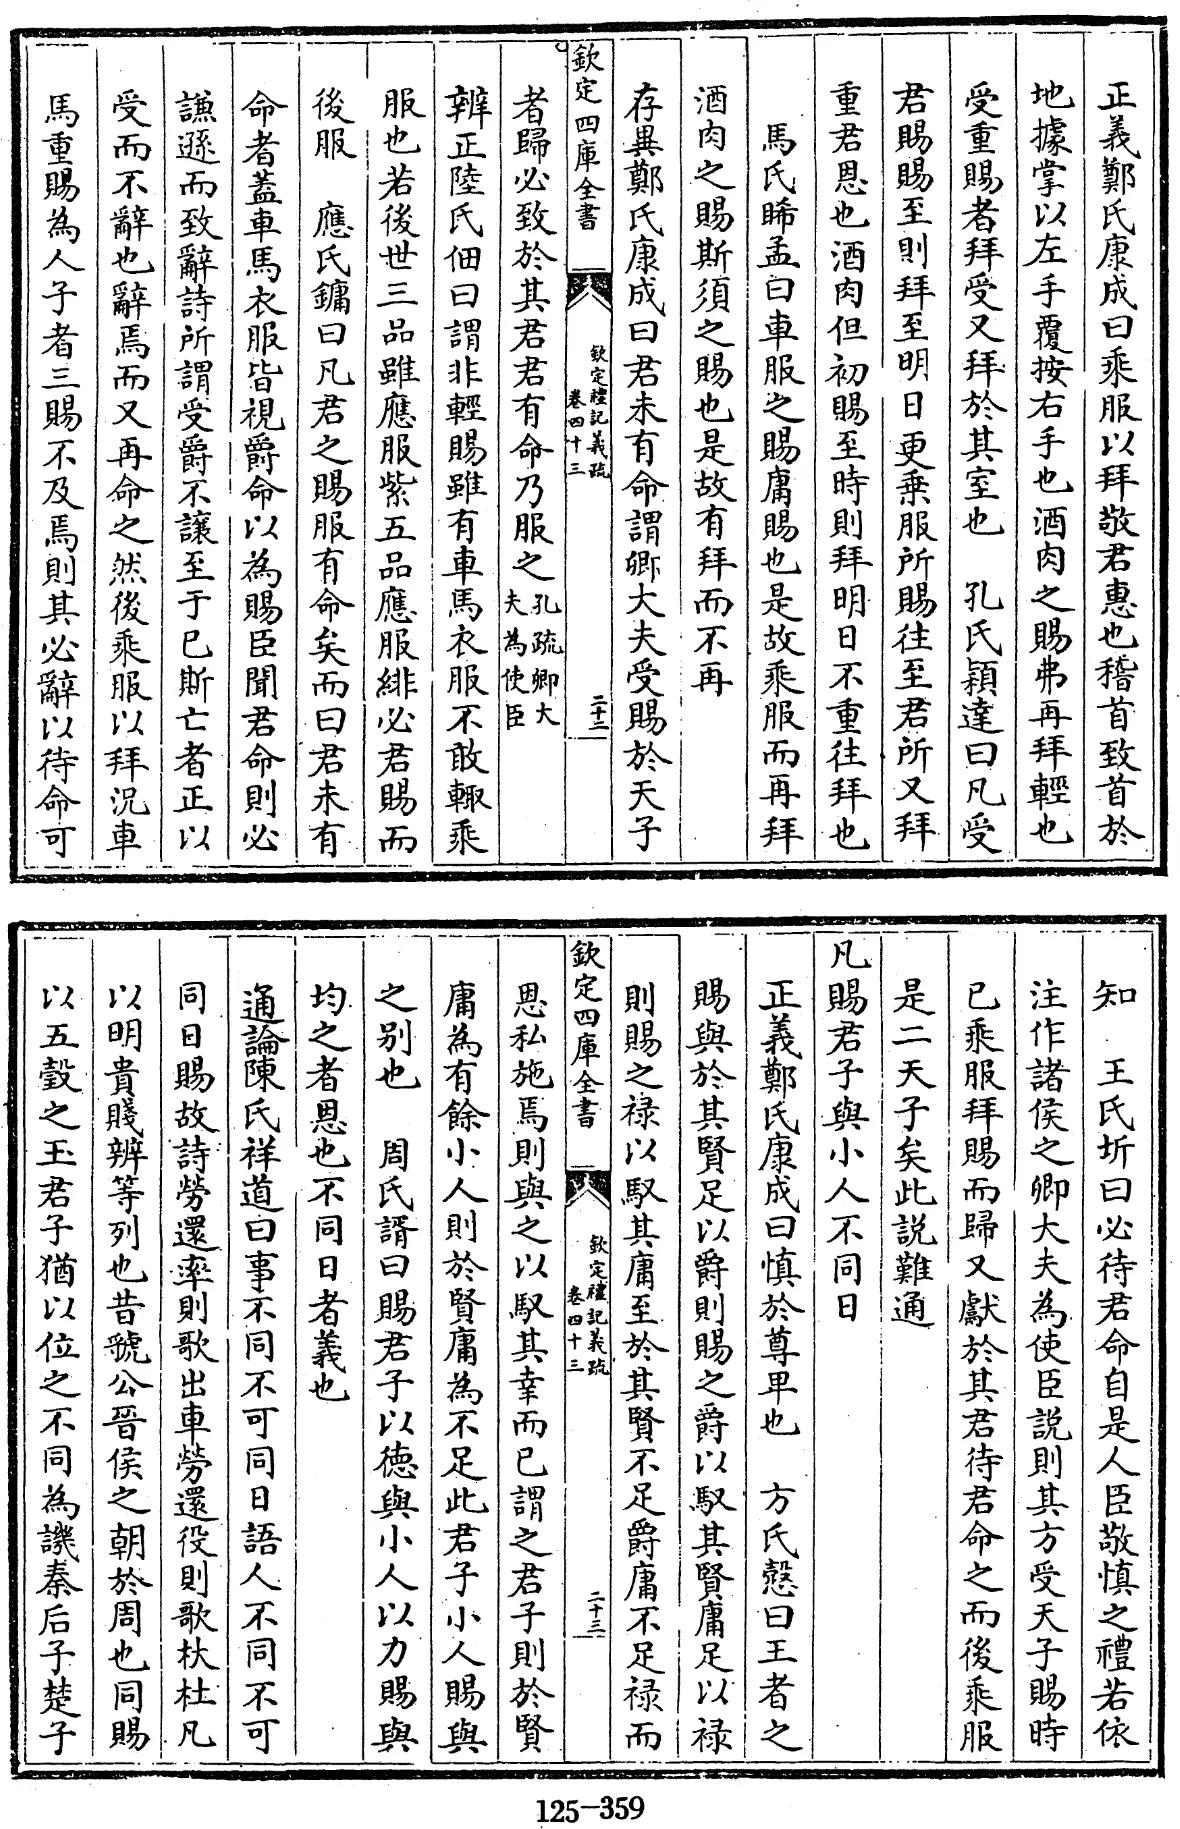 正義鄭氏康成曰乘服以拜敬君惠也稽首致首於
地據掌以左手覆按右手也酒肉之賜弗再拜輕也
受重賜者拜受又拜於其室也　孔氏穎達曰凡受
君賜賜至則拜至明日更乗服所賜往至君所又拜
重君恩也酒肉但初賜至時則拜明日不重往拜也
馬氏晞孟曰車服之賜庸賜也是故乘服而再拜
酒肉之賜斯須之賜也是故有拜而不再
存異鄭氏康成曰君未有命謂卿大夫受賜於天子
欽定四庫全書
欽定禮記義疏
卷四十三
二十二
者歸必致於其君君有命乃服之孔疏卿大
夫為使臣
辨正陸氏佃曰謂非輕賜雖有車馬衣服不敢輙乘
服也若後世三品雖應服紫五品應服緋必君賜而
後服　應氏鏞曰凡君之賜服有命矣而曰君未有
命者葢車馬衣服皆視爵命以為賜臣聞君命則必
謙遜而致辭詩所謂受爵不讓至于已斯亡者正以
受而不辭也辭焉而又再命之然後乘服以拜況車
馬重賜為人子者三賜不及焉則其必辭以待命可
知　王氏圻曰必待君命自是人臣敬慎之禮若依
注作諸侯之卿大夫為使臣説則其方受天子賜時
已乘服拜賜而歸又獻於其君待君命之而後乘服
是二天子矣此説難通
凡賜君子與小人不同日
正義鄭氏康成曰慎於尊卑也　方氏慤曰王者之
賜與於其賢足以爵則賜之爵以馭其賢庸足以禄
則賜之禄以馭其庸至於其賢不足爵庸不足禄而
欽定四庫全書
欽定禮記義疏
卷四十三
二十三
恩私施焉則與之以馭其幸而已謂之君子則於賢
庸為有餘小人則於賢庸為不足此君子小人賜與
之別也　周氏諝曰賜君子以德與小人以力賜與
均之者恩也不同日者義也
通論陳氏祥道曰事不同不可同日語人不同不可
同日賜故詩勞還率則歌出車勞還役則歌杕杜凡
以明貴賤辨等列也昔虢公晉侯之朝於周也同賜
以五瑴之玉君子猶以位之不同為譏秦后子楚子
125-359